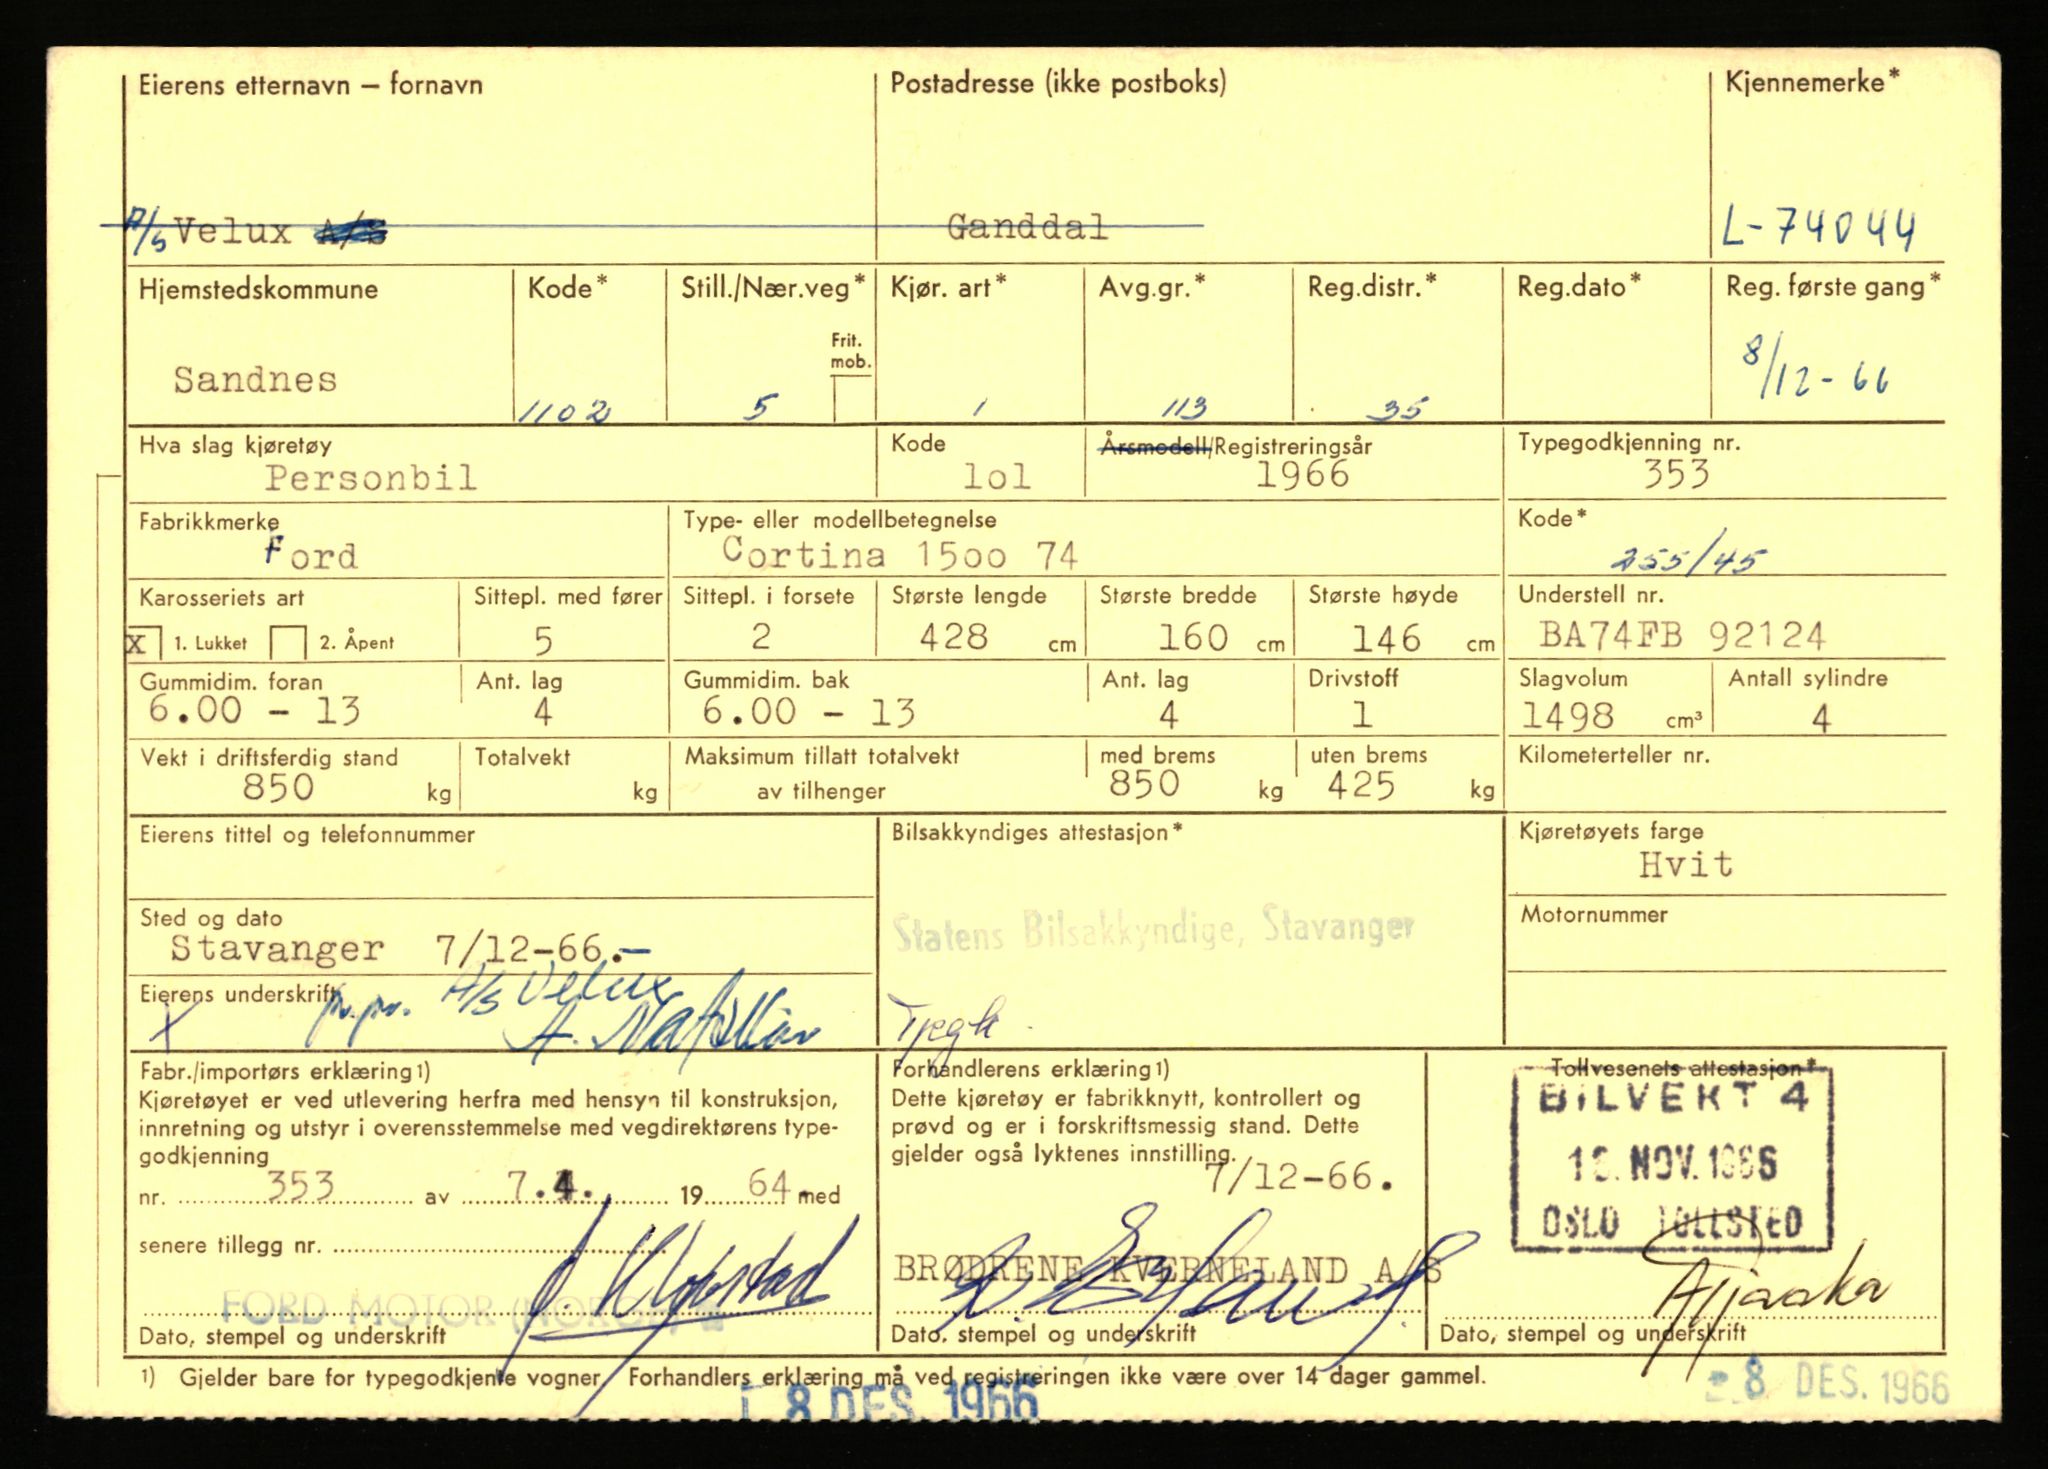 Eierens etternavn – fornavn Postadresse (ikke postboks) Kjennemerke*
A/S Velux A/S Ganddal L-74044
Hjemstedskommune Kode* Still./Nær.veg* Kjør. art* Avg.gr.* Reg.distr.* Reg.dato* Reg. første gang*
Frit. mob.
Sandnes 1102 5 1 113 35 8/12-66
Hva slag kjøretøy Kode Årsmodell/Registreringsår Typegodkjenning nr.
Personbil lol 1966 353
Fabrikkmerke Type- eller modellbetegnelse Kode*
Ford Cortina 15oo 74 255/45
Karosseriets art Sittepl. med fører Sittepl. i forsete Største lengde Største bredde Største høyde Understell nr.
X 1. Lukket 2. Åpent 5 2 428 cm 160 cm 146 cm BA74FB 92124
Gummidim. foran Ant. lag Gummidim. bak Ant. lag Drivstoff Slagvolum Antall sylindre
6.00 - 13 4 6.00 - 13 4 1 1498 cm³ 4
Vekt i driftsferdig stand Totalvekt Maksimum tillatt totalvekt med brems uten brems Kilometerteller nr.
850 kg kg av tilhenger 850 kg 425 kg
Eierens tittel og telefonnummer Bilsakkyndiges attestasjon* Kjøretøyets farge
Hvit
Sted og dato Statens Bilsakkyndige, Stavanger Motornummer
Stavanger 7/12-66.-
Eierens underskrift pr.pr. A/S Velux
X A.
Fabr./importørs erklæring1) Forhandlerens erklæring1) Tollvesenets attestasjon*
Kjøretøyet er ved utlevering herfra med hensyn til konstruksjon, Dette kjøretøy er fabrikknytt, kontrollert og BILVEKT 4
innretning og utstyr i overensstemmelse med vegdirektørens type- prøvd og er i forskriftsmessig stand. Dette
godkjenning gjelder også lyktenes innstilling. NOV. 1966
nr. 353 av 7.4. 1964. med 7/12-66.
senere tillegg nr. OSLO TOLLSTED
BRØDRENE KVERNELAND A/S
FORD MOTOR (NORGE)
Dato, stempel og underskrift Dato, stempel og underskrift Dato, stempel og underskrift
1) Gjelder bare for typegodkjente vogner. Forhandlers erklæring må ved registreringen ikke være over 14 dager gammel.
8 DES. 1966 8 DES. 1966